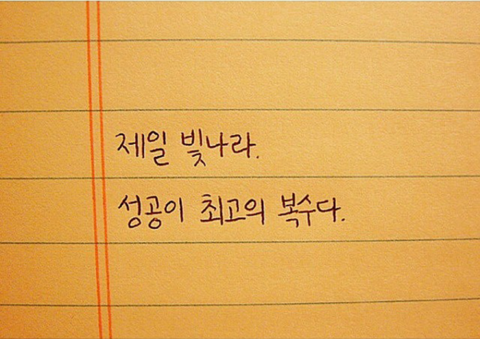 제일 빛나라.
성공이 최고의 복수다.